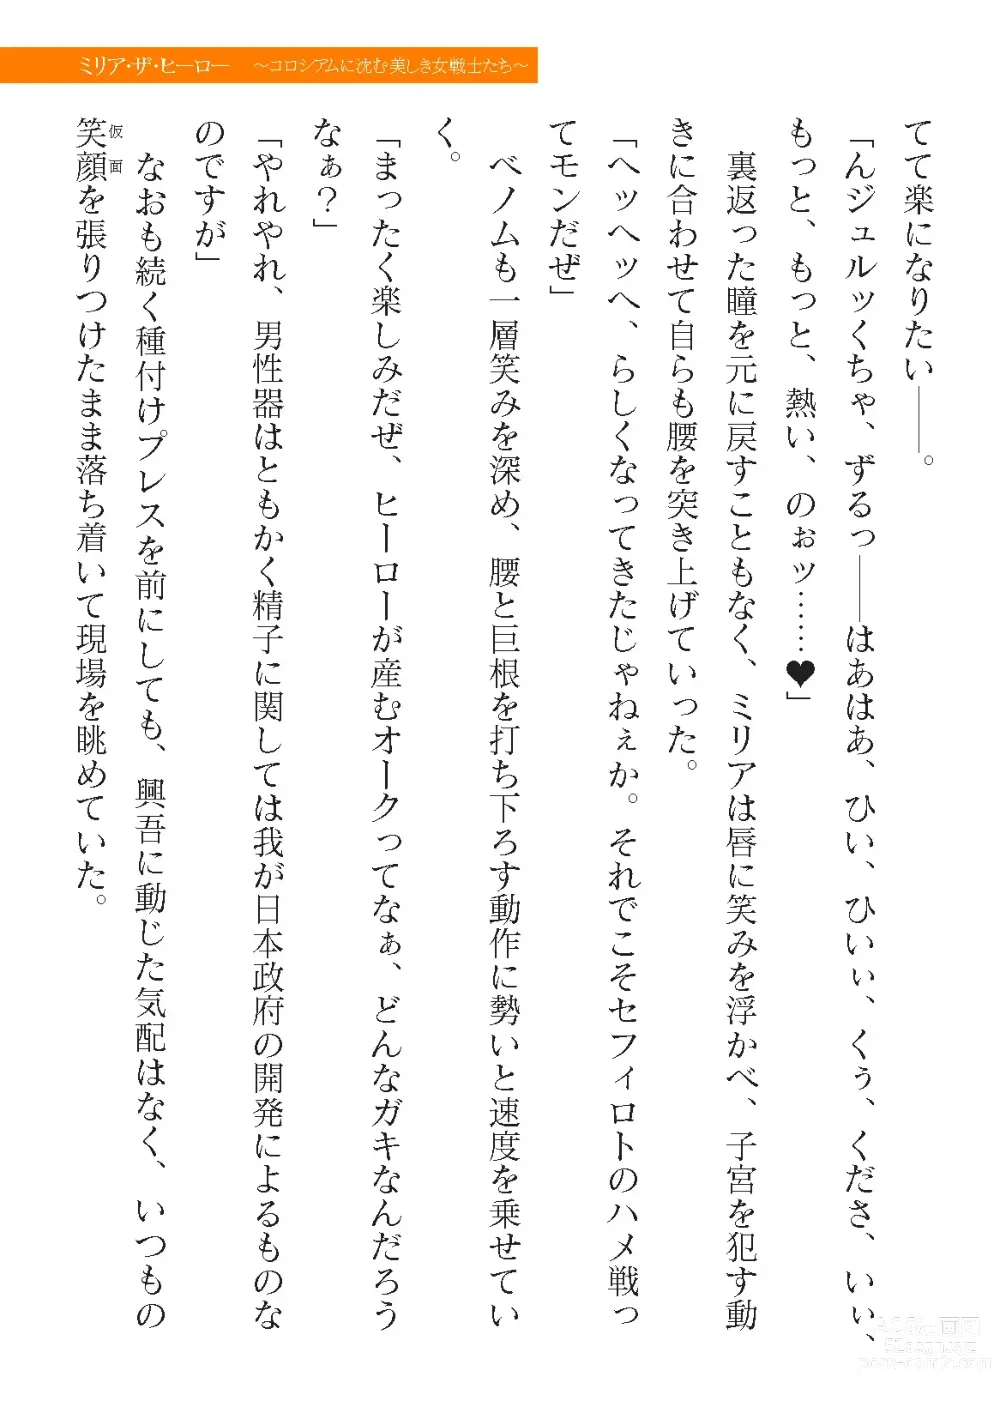 ミリア・ザ・ヒーロー　～コロシアムに沈む美しき女戦士たち～
てて楽になりたい――。
「んジュルッくちゃ、ずるっ――はあはあ、ひい、ひいぃ、くぅ、くださ、いぃ、
もっと、もっと、熱い、のぉッ……♥」
　裏返った瞳を元に戻すこともなく、ミリアは唇に笑みを浮かべ、子宮を犯す動
きに合わせて自らも腰を突き上げていった。
「ヘッヘッヘ、らしくなってきたじゃねぇか。それでこそセフィロトのハメ戦っ
てモンだぜ」
　ベノムも一層笑みを深め、腰と巨根を打ち下ろす動作に勢いと速度を乗せてい
く。
「まったく楽しみだぜ、ヒーローが産むオークってなぁ、どんなガキなんだろう
なぁ？」
「やれやれ、男性器はともかく精子に関しては我が日本政府の開発によるものな
のですが」
　なおも続く種付けプレスを前にしても、興吾に動じた気配はなく、いつもの
笑顔を張りつけたまま落ち着いて現場を眺めていた。
仮面
ACGk-画网
52acgn.xyz
porn-comic.com